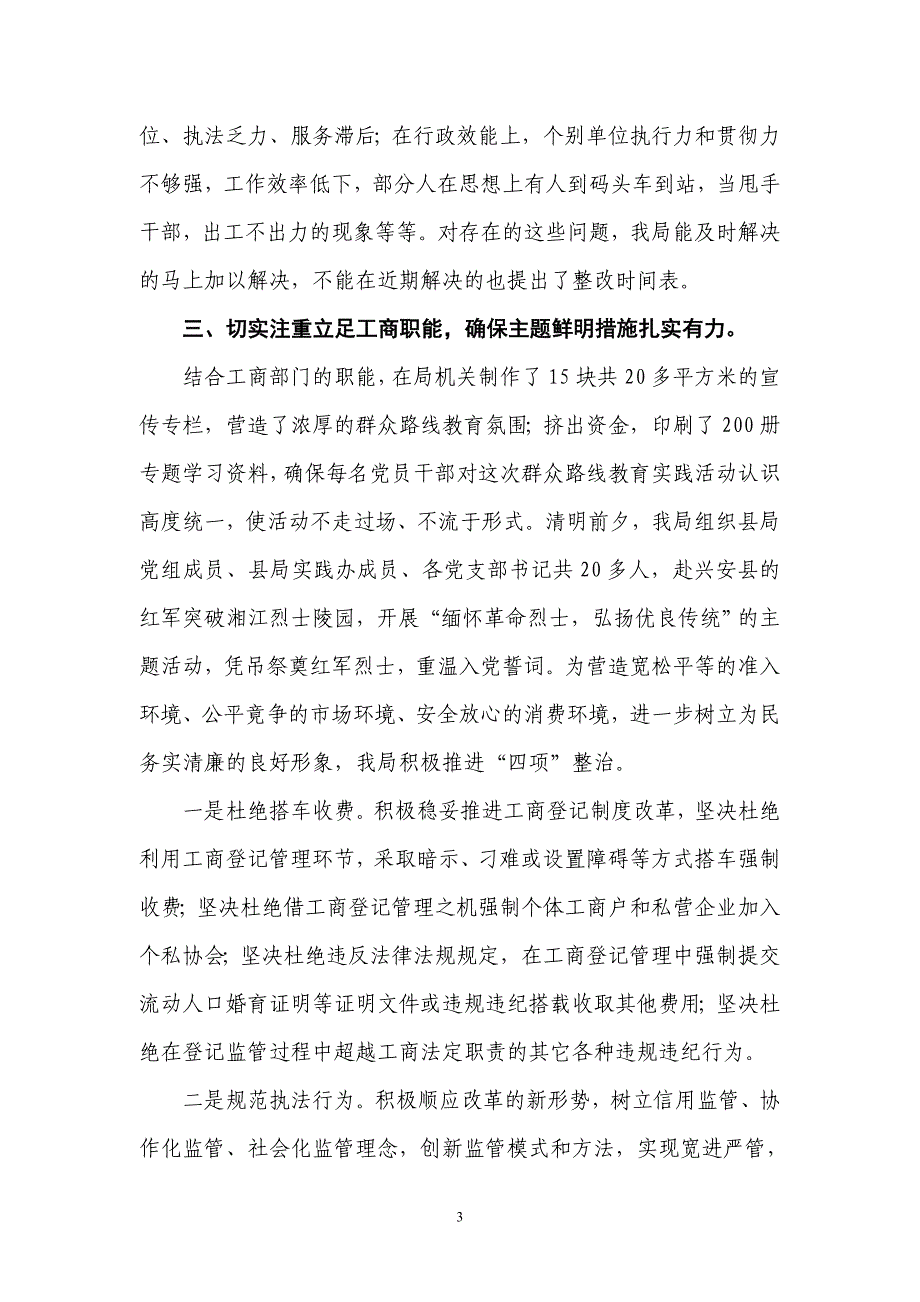 位、执法乏力、服务滞后；在行政效能上，个别单位执行力和贯彻力
不够强，工作效率低下，部分人在思想上有人到码头车到站，当甩手
干部，出工不出力的现象等等。对存在的这些问题，我局能及时解决
的马上加以解决，不能在近期解决的也提出了整改时间表。
三、切实注重立足工商职能，确保主题鲜明措施扎实有力。
结合工商部门的职能，在局机关制作了 15 块共 20 多平方米的宣
传专栏，营造了浓厚的群众路线教育氛围；挤出资金，印刷了 200 册
专题学习资料，确保每名党员干部对这次群众路线教育实践活动认识
高度统一，使活动不走过场、不流于形式。清明前夕，我局组织县局
党组成员、县局实践办成员、各党支部书记共 20 多人，赴兴安县的
红军突破湘江烈士陵园，开展“缅怀革命烈士，弘扬优良传统”的主
题活动，凭吊祭奠红军烈士，重温入党誓词。为营造宽松平等的准入
环境、公平竞争的市场环境、安全放心的消费环境，进一步树立为民
务实清廉的良好形象，我局积极推进“四项”整治。
一是杜绝搭车收费。积极稳妥推进工商登记制度改革，坚决杜绝
利用工商登记管理环节，采取暗示、刁难或设置障碍等方式搭车强制
收费；坚决杜绝借工商登记管理之机强制个体工商户和私营企业加入
个私协会；坚决杜绝违反法律法规规定，在工商登记管理中强制提交
流动人口婚育证明等证明文件或违规违纪搭载收取其他费用；坚决杜
绝在登记监管过程中超越工商法定职责的其它各种违规违纪行为。
二是规范执法行为。积极顺应改革的新形势，树立信用监管、协
作化监管、社会化监管理念，创新监管模式和方法，实现宽进严管，
3